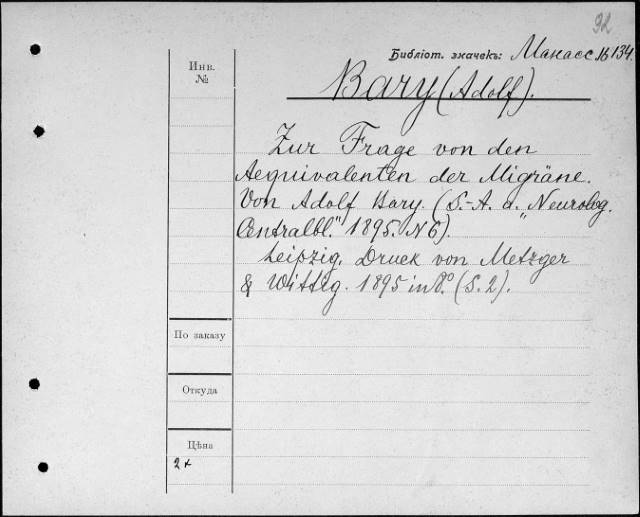 92
Библіот. значекъ: Манасс № 134.
Инв.
№
Bary (Adolf).
Zur Frage von den
Aequivalenten der Migräne.
Von Adolf Bary. (S.-A. a. „Neurolog.
Centralbl." 1895. N 6).
Leipzig. Druck von Metzger
& Wittig. 1895 in 8.° (S. 2).
По заказу
Откуда
Цѣна
2 x